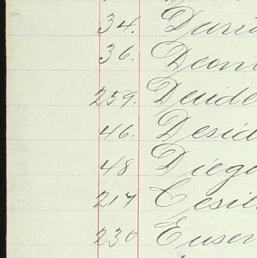 34.
36.
259. Deide
46. Desid
48 Diego
217 Cesil
230 Euser